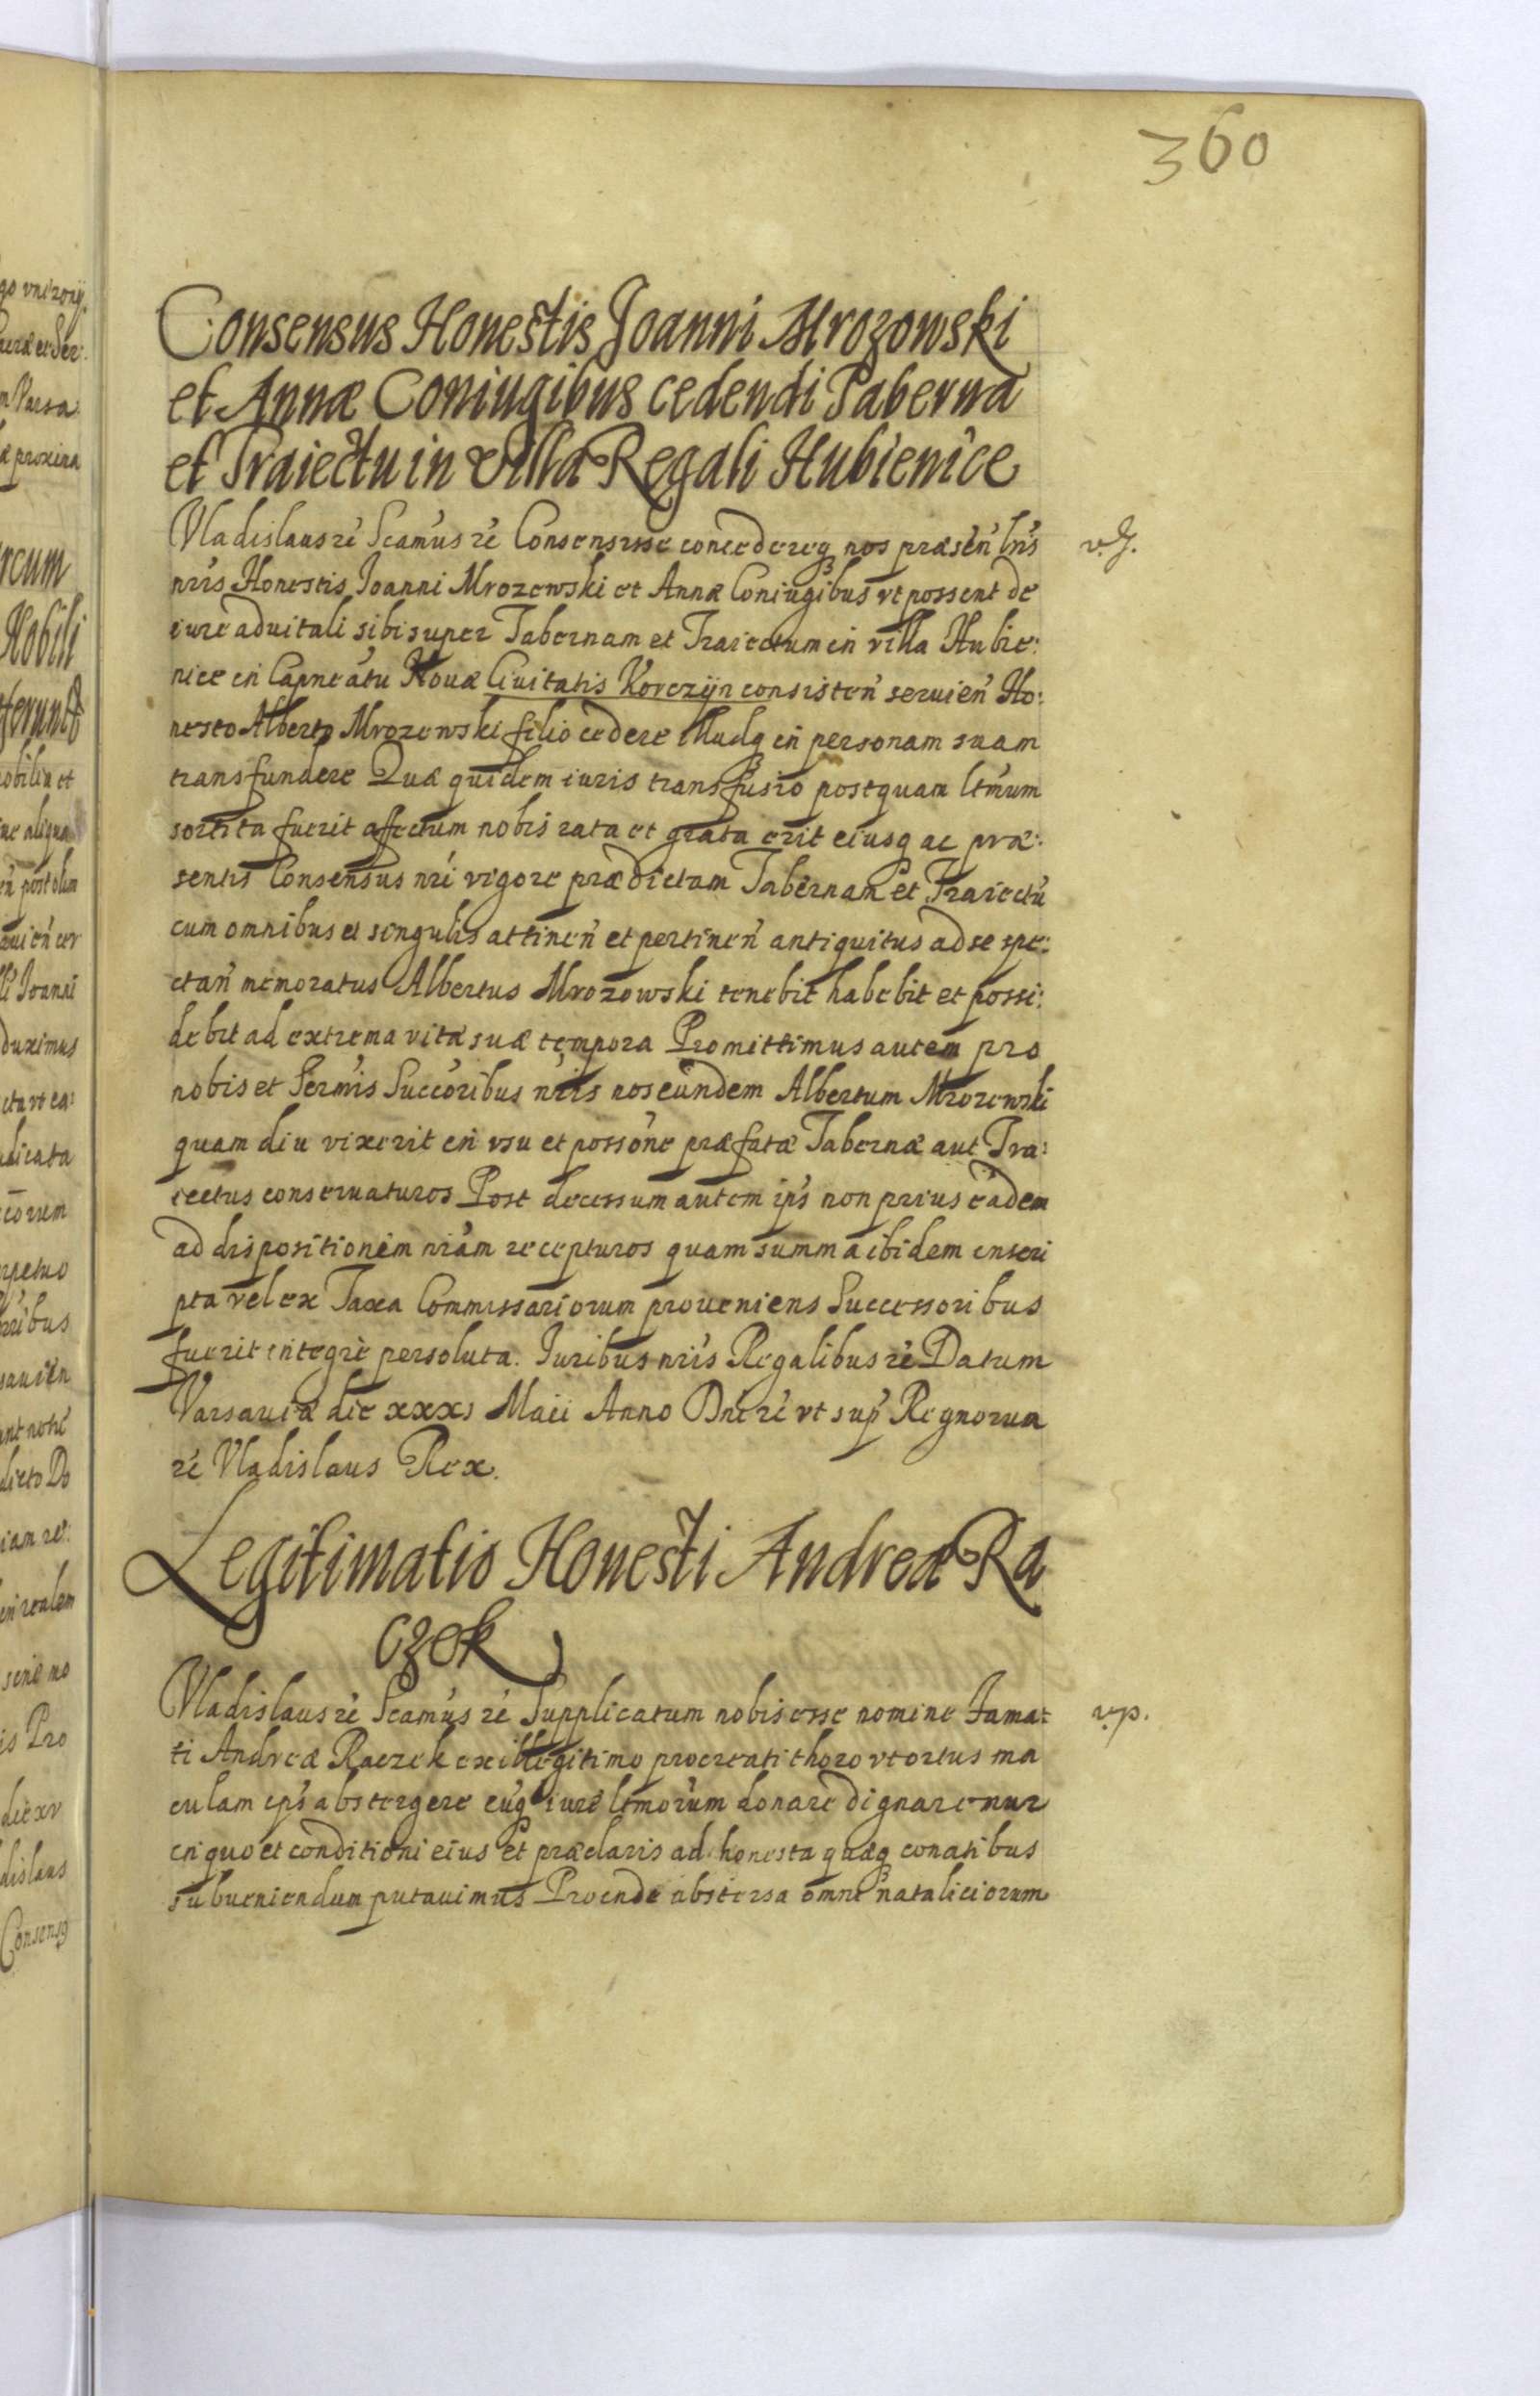 360
Consensus Honestis Joanni Mrozowski
et Annæ Coniugibus cedendi Taberna
et Traiectu in villa Regali Hubienice
Vladislaus rė Scamús rė Consensisse concedereq nos præsén lris
nris Honestis Joanni Mrozowski et Annæ Coniugibus vt possent de
iure aduitali sibi super Tabernam et Traiectum in villa Hubie:
nice in Capneátu Nouæ Ciuitatis Korczÿn consisten̄ seruien̄ Ho:
nesto Alberto Mrozowski filio cedere illudq in personam suam
transfundere Quæ quidem iuris transfusio postquam ltmum
sortita fuerit affectum nobis rata et grata erit eiusq ac præ:
sentis Consensus nri vigore prædictam Tabernam et Traiectū
cum omnibus et singulis attinen̄ et pertinen̄ antiquitus ad se spe:
ctan̄ memoratus Albertus Mrozowski tenebit habebit et possi:
debit ad extrema vitæ suæ tempora Promittimus autem pro
nobis et Sermis Succoribus nris nos eundem Albertum Mrozowski
quam diu vixerit in vsu et possóne præfatæ Tabernæ aut Tra:
iectus conseruaturos Post decessum autem ipś non prius eadem
ad dispositioném nrám recepturos quam summa ibidem inscri
pta vel ex Taxa Commissariorum proueniens Successoribus
fuerit integrè persoluta. Juribus nris Regalibus rė Datum
Varsauiæ die xxxi Maii Anno Dni rė vt sup̄ Regnorum
rė Vladislaus Rex.
v.J.
Legitimatio Honesti Andreæ Ra
czek
Vladislaus rė Scamús rė Supplicatum nobis esse nomine Fama:
ti Andreæ Raczek ex illegitimo procreati thoro vt ortus ma
culam ipś abstergere eúq iure ltmorum donare dignaremur
in quo et conditioni eius et præclaris ad honesta quæq conatibus
subueniendum putauimus Proinde abstersa omni nataliciorum
v.p.